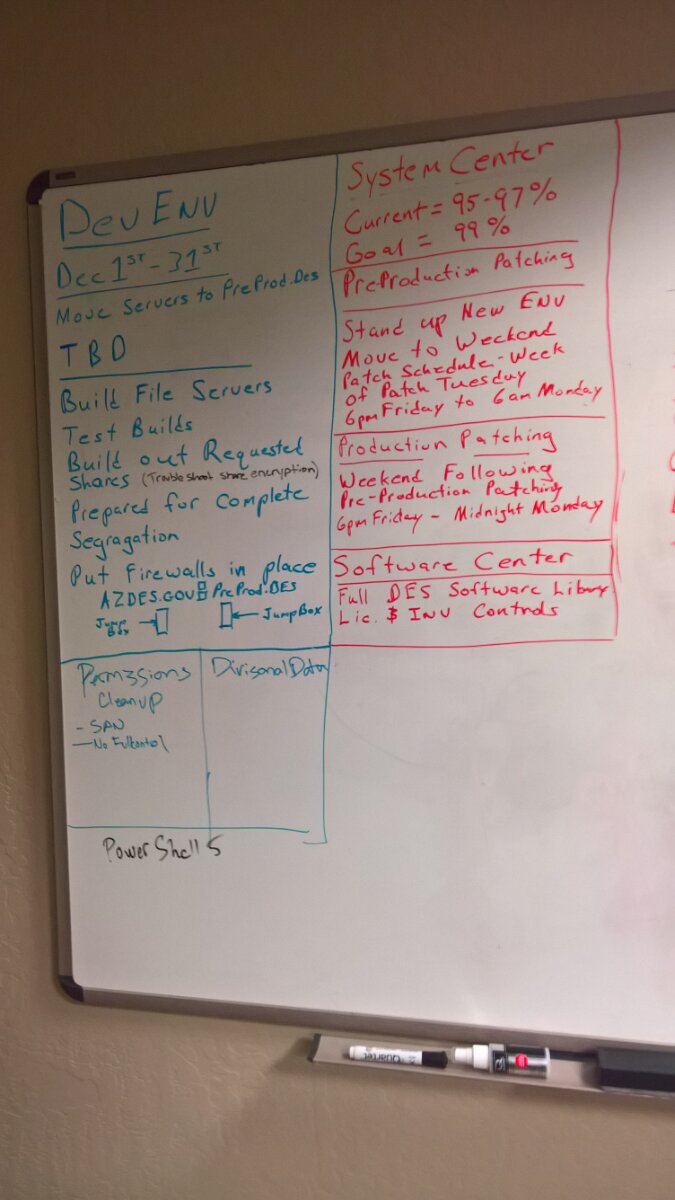 Dev ENV
Dec 1ST - 31ST
Move Servers to PreProd.Des
TBD
Build File Servers
Test Builds
Build out Requested
Shares (Trouble shoot share encryption)
Prepared for Complete
Segragation
Put Firewalls in place
AZDES.GOV PreProd.DES
Jump
Box
JumpBox
Permissions
Cleanup
- SAN
- No Fullcontrol
Divisonal Data
PowerShell 5
System Center
Current = 95-97%
Goal = 99%
PreProduction Patching
Stand up New ENV
Move to Weekend
Patch Schedule - Week
of Patch Tuesday
6pm Friday to 6am Monday
Production Patching
Weekend Following
Pre-Production Patching
6pm Friday - Midnight Monday
Software Center
Full DES Software Library
Lic. $ INV Controls
Quartet